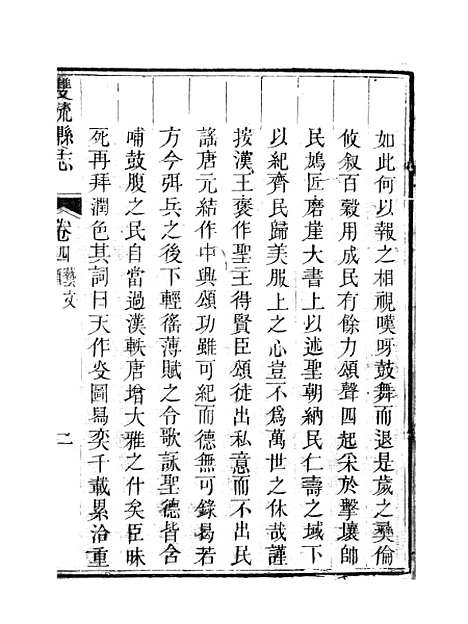 如此何以報之相視嘆呀鼓舞而退是歲之彝倫
攸叙百穀用成民有餘力頌聲四起采於擊壤帥
民鳩匠磨崖大書上以述聖朝納民仁壽之域下
以紀齊民歸美服上之心豈不爲萬世之休哉謹
按漢王褒作聖主得賢臣頌徒出私意而不出民
謠唐元結作中興頌功雖可紀而德無可錄曷若
方今弭兵之後下輕徭薄賦之令歌詠聖德皆含
哺鼓腹之民自當過漢軼唐增大雅之什矣臣昧
死再拜潤色其詞曰天作炎圖舄奕千載累洽重
雙流縣志
卷四
藝文
二